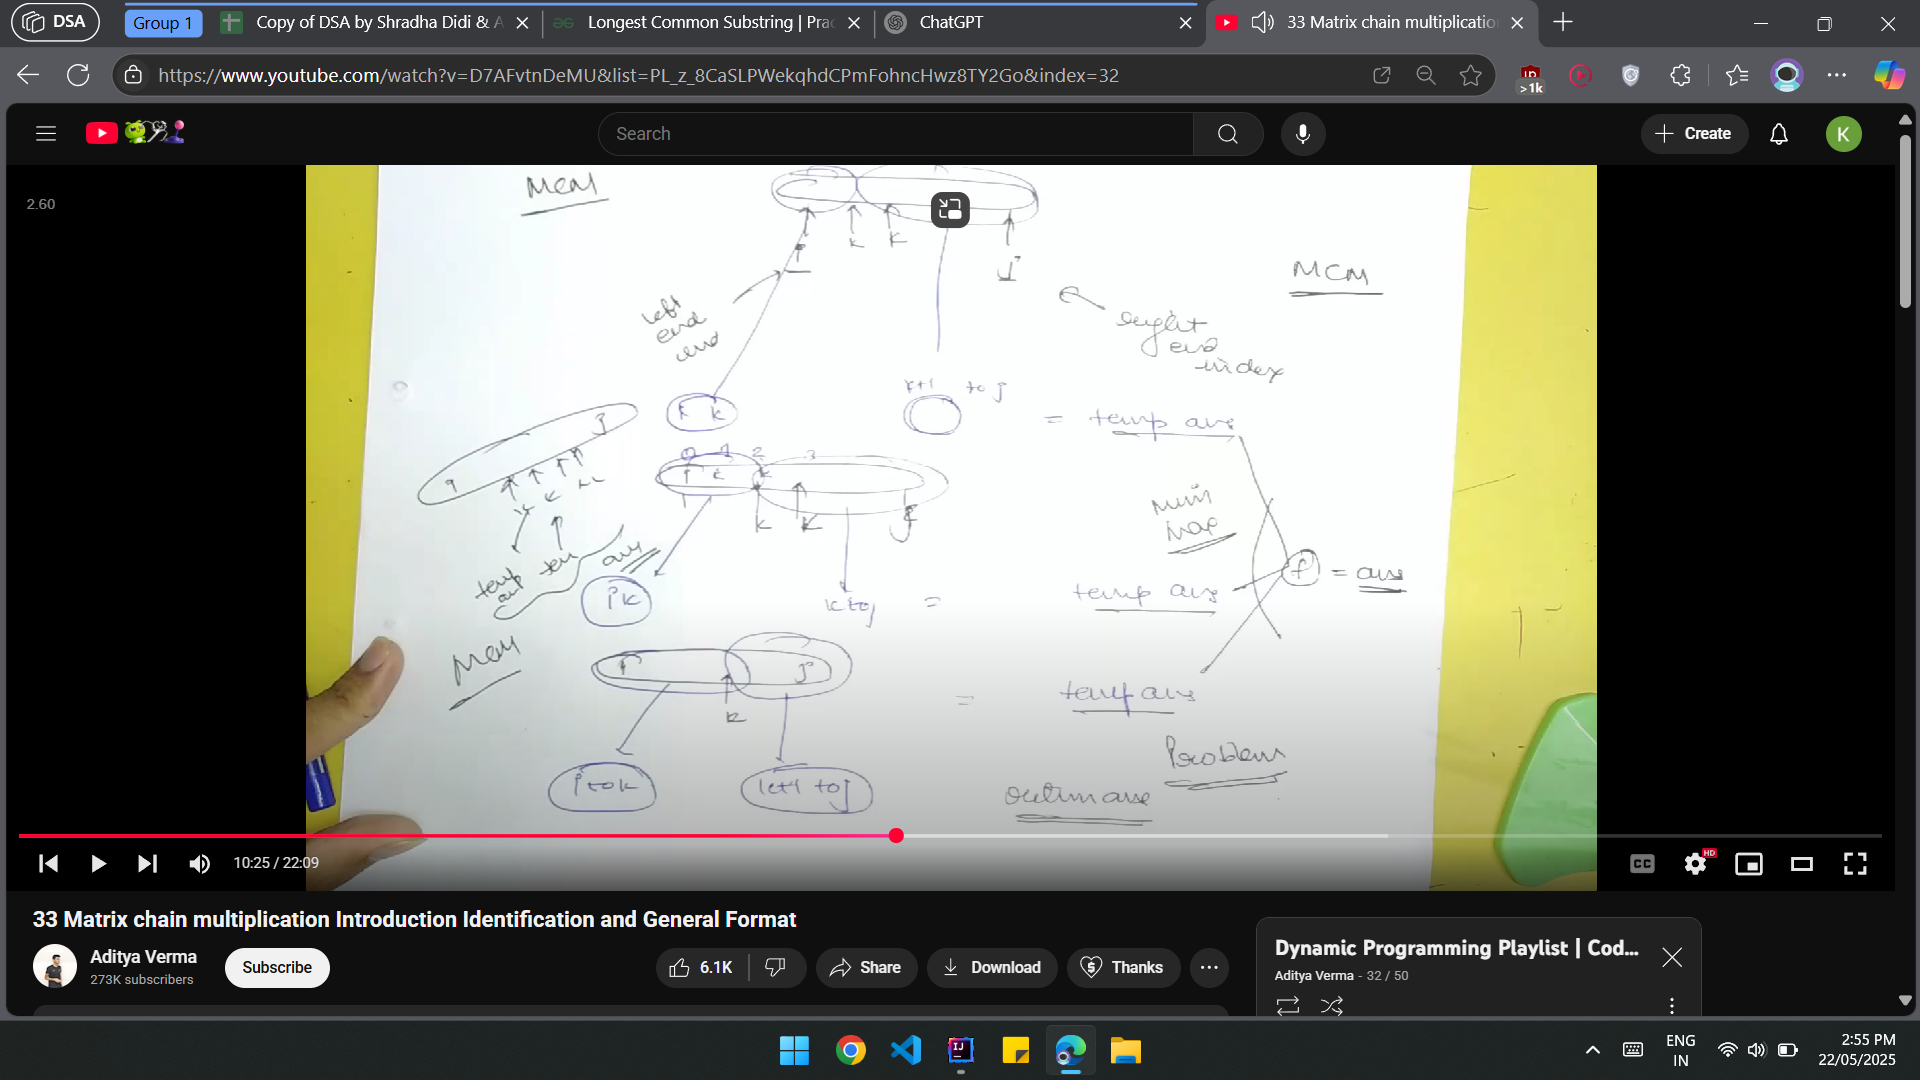 DSA
Group 1
Copy of DSA by Shradha Didi & A
Longest Common Substring | Prac
ChatGPT
33 Matrix chain multiplicatio
https://www.youtube.com/watch?v=D7AFvtnDeMU&list=PL_z_8CaSLPWekqhdCPmFohncHwz8TY2Go&index=32
>1k
Search
Create
K
2.60
MCM
i
k
k
j
MCM
left
end
right
end
index
i k
k+1 to j
= temp ans
j
i
k
0 1 2 3
i k k
k
k
j
min
max
temp ans
f = ans
i k
k to j
=
temp
ans
ans
MCM
i
j
k
= temp ans
Problem
i to k
k+1 to j
10:25 / 22:09
CC
HD
33 Matrix chain multiplication Introduction Identification and General Format
Aditya Verma
273K subscribers
Subscribe
6.1K
Share
Download
Thanks
Dynamic Programming Playlist | Cod...
Aditya Verma - 32 / 50
ENG
IN
2:55 PM
22/05/2025